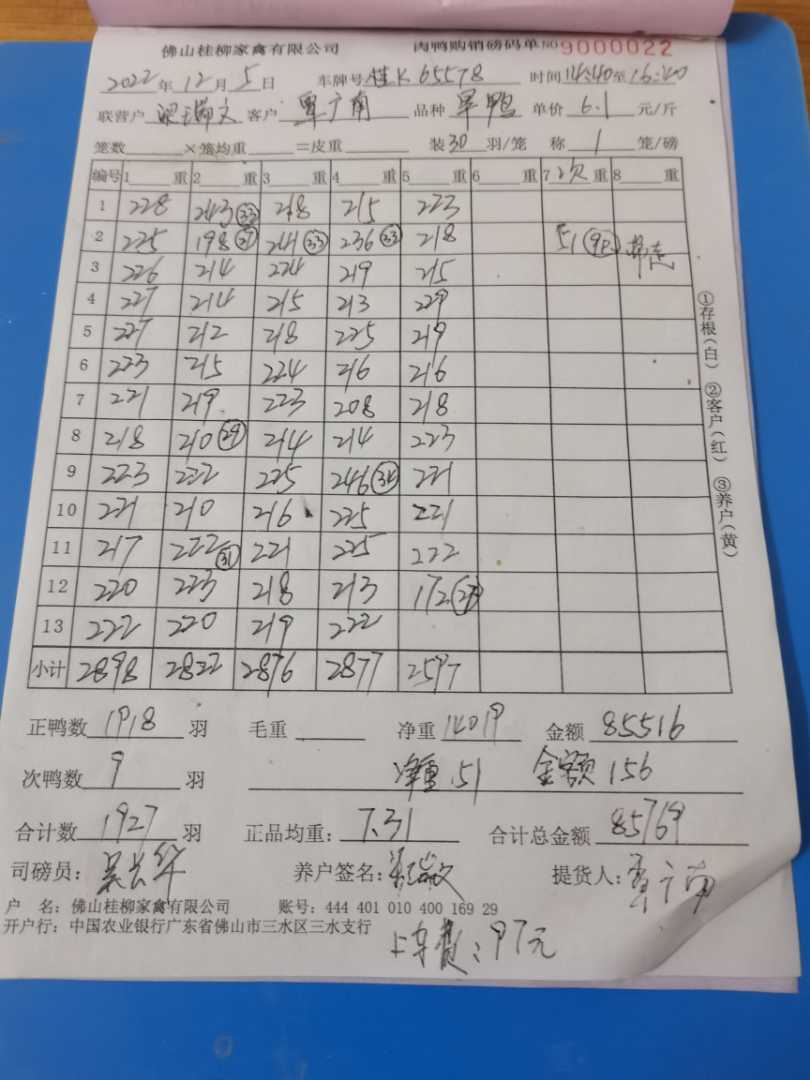 佛山桂柳家禽有限公司 肉鸭购销磅码单 NO 9000022
2022年12月5日 车牌号 桂K65578 时间 14:40至16:40
联营户 客户 覃广南 品种 单价 6.1 元/斤
笼数 ×笼均重 =皮重 装30羽/笼 称 1 笼/磅
编号 1 重 2 重 3 重 4 重 5 重 6 重 7次 重 8 重
1 228 243 (33) 218 215 223
2 225 198 (27) 241 (33) 236 (33) 218 51
3 226 214 224 219 215
4 227 214 215 213 229
5 227 212 218 225 219
6 223 215 224 216 216
7 221 219 223 208 218
8 218 210 (29) 214 214 223
9 223 222 225 246 (34) 221
10 221 210 216 225 221
11 217 222 (31) 221 225 222
12 220 223 218 213 172
13 222 220 219 222
小计 2898 2822 2876 2877 2597
①存根(白) ②客户(红) ③养户(黄)
正鸭数 1918 羽 毛重 净重 14019 金额 85516
次鸭数 9 羽 净重 51 金额 156
合计数 1927 羽 正品均重: 7.31 合计总金额 85769
司磅员: 吴长华 养户签名: 提货人: 覃广南
户 名: 佛山桂柳家禽有限公司 账号: 444 401 010 400 169 29
开户行: 中国农业银行广东省佛山市三水区三水支行
上车费:97元